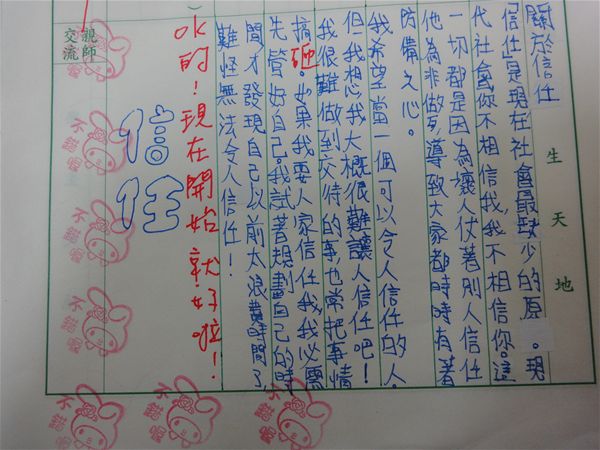 生天地
關於信任
信任是現在社會最缺少的原 。現
代社會你不相信我,我不相信你。這
一切都是因為壞人仗著別人信任
他為非做歹,導致大家都時時有著
防備之心。
我希望當一個可以令人信任的人。
但我想我大概很難讓人信任吧!
我很難做到交待的事,也常把事情
搞砸。如果我要人家信任我,我必需
先管好自己。我試著規劃自己的時
間才發現自己以前太浪費時間了,
難怪無法令人信任!
的!現在開始就好啦!
信任
親師
交流